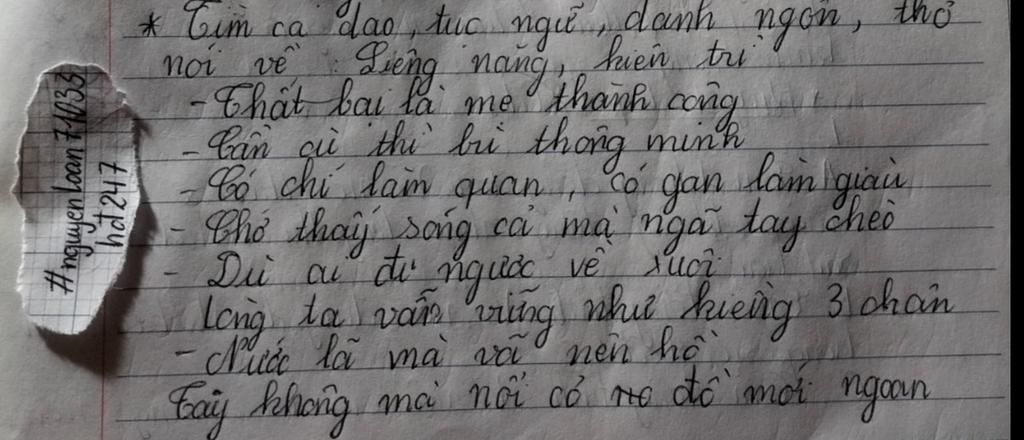 * Tìm ca dao, tục ngữ, danh ngôn, thơ
nói về: Siêng năng, kiên trì
- Thất bại là mẹ thành công
- Cần cù thì bù thông minh
- Có chí làm quan, có gan làm giàu
- Chớ thấy sóng cả mà ngã tay chèo
- Dù ai đi ngược về xuôi
Lòng ta vẫn vững như kiềng 3 chân
- Nước lã mà vã nên hồ
Tay không mà nổi cơ đồ mới ngoan
#nguyenloan71033
hdt247